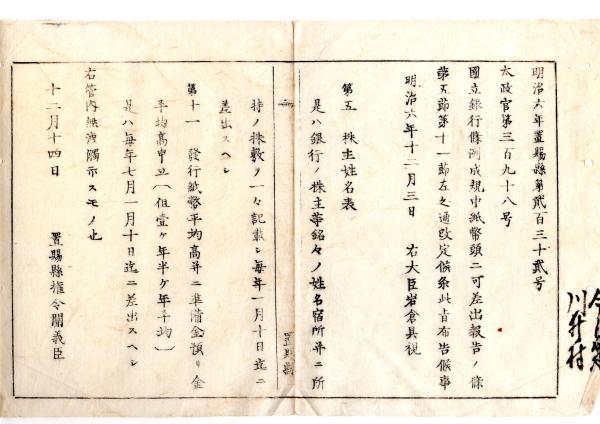 明治六年置賜縣第貳百三十貳号
太政官第三百九十八号
國立銀行條例成規中紙幣頭ニ可差出報告ノ條
第五節第十一節左之通改定候条此旨布告候事
明治六年十二月三日　右大臣岩倉具視
第五　株主姓名表
是ハ銀行ノ株主等銘々ノ姓名宿所并ニ所
持ノ株數ヲ一々記載シ毎年一月十日迄ニ
差出スヘシ
第十一　發行紙幣平均高并ニ準備金預リ金
平均高申立（但壹ヶ年半ヶ年平均）
是ハ毎年七月一月十日迄ニ差出スヘシ
右管内無洩觸示スモノ也
十二月十四日　置賜縣權令關義臣
川井村